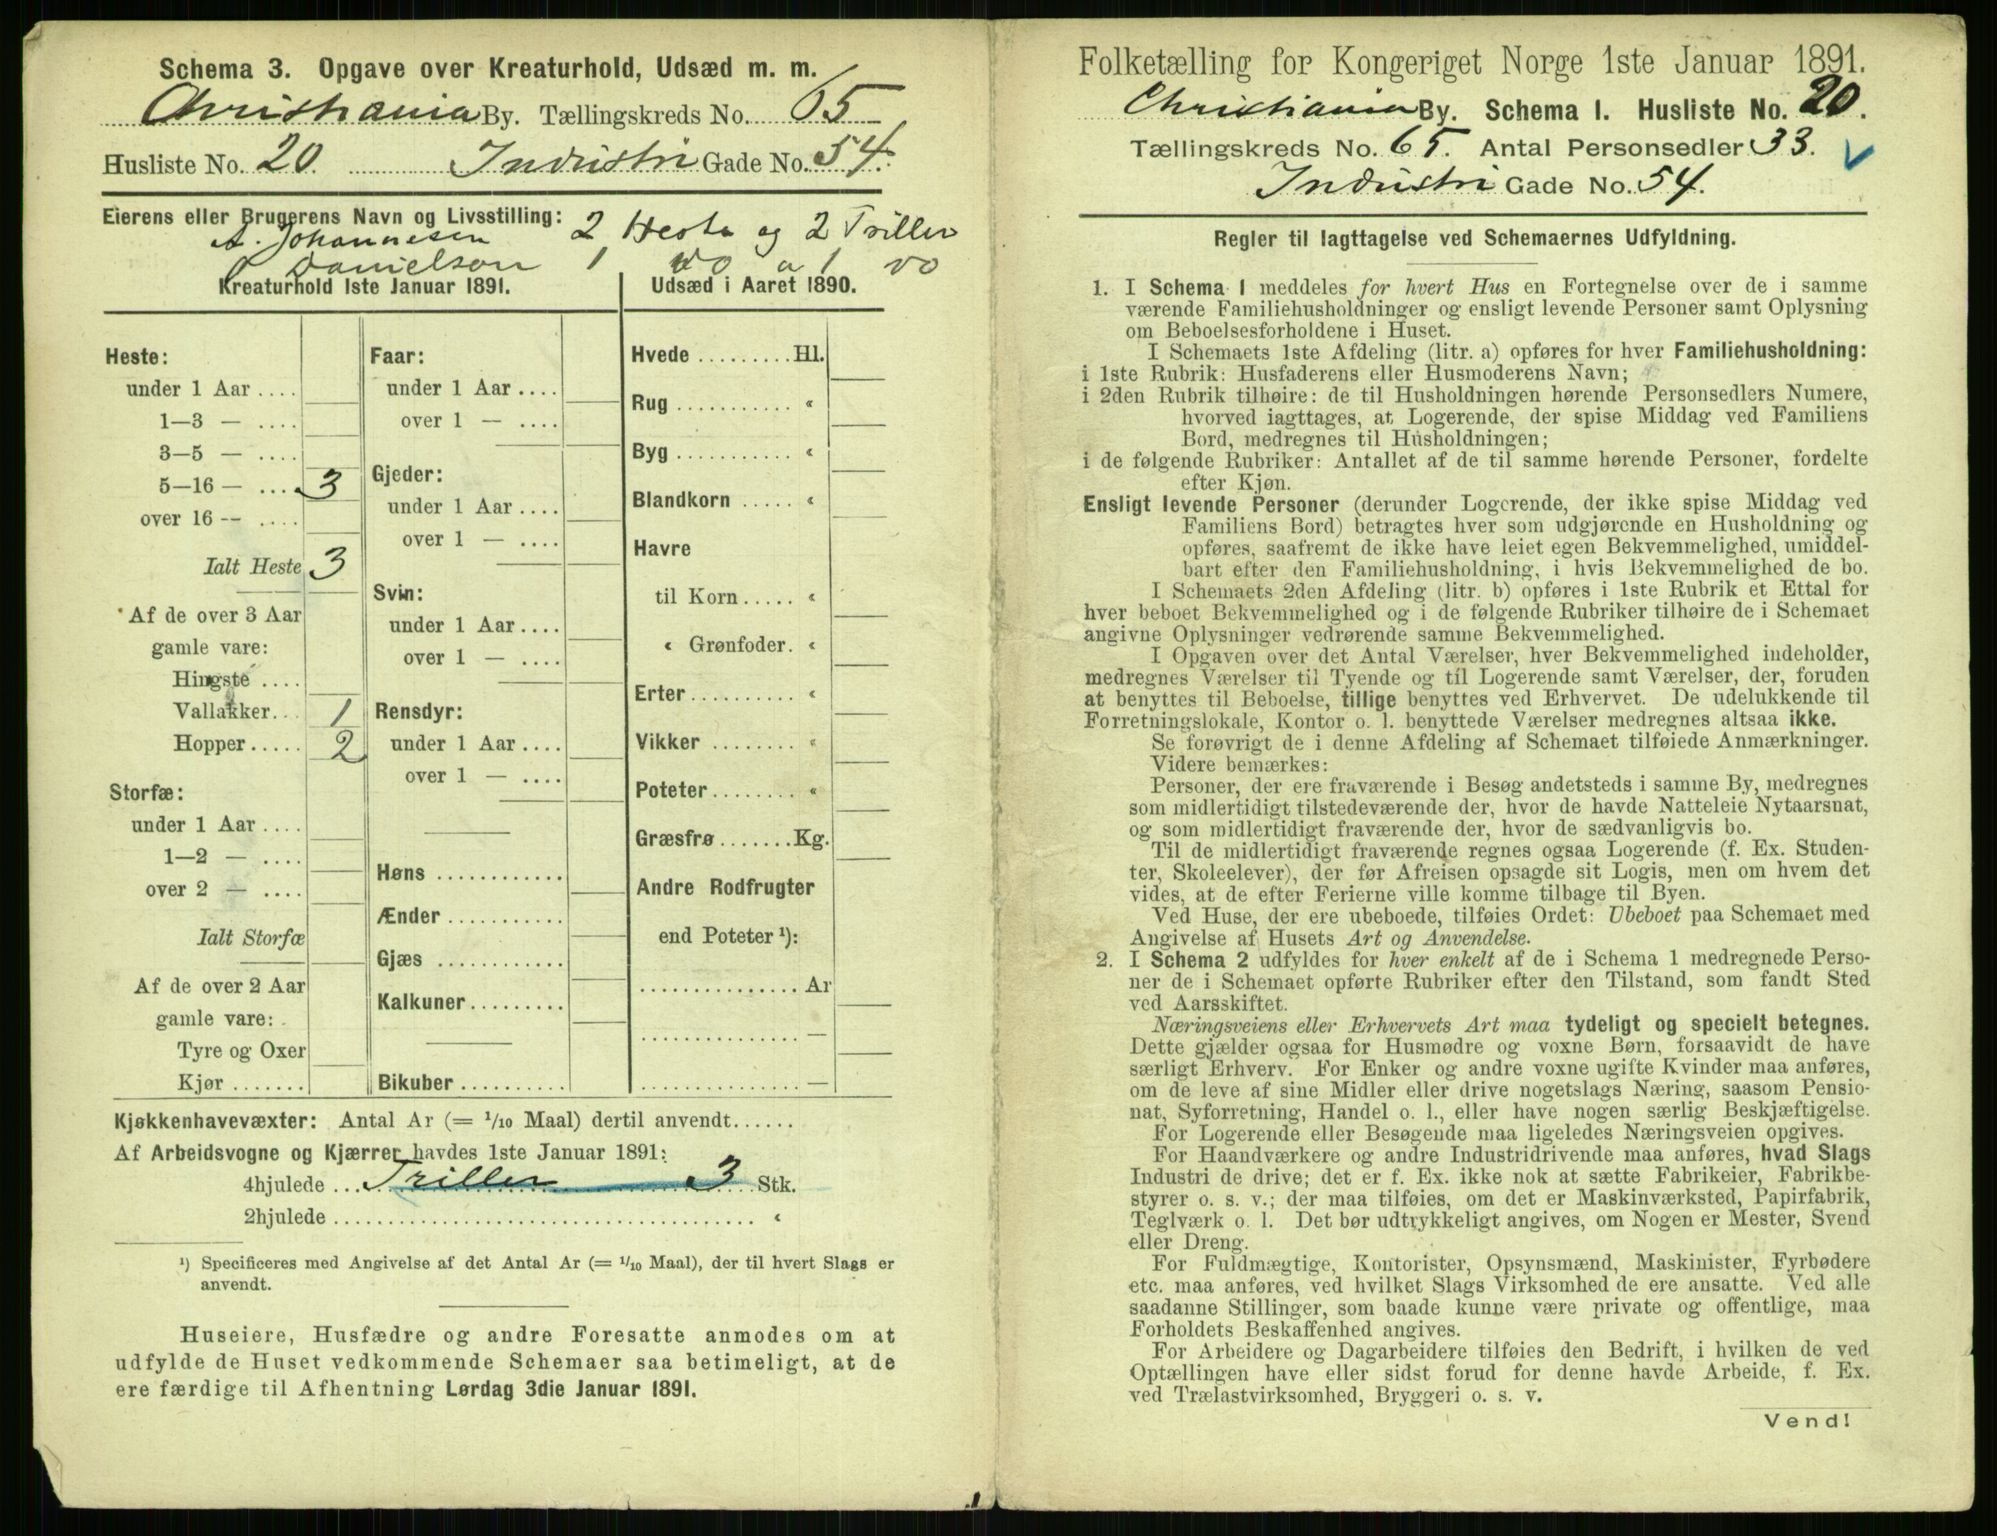 Schema 3. Opgave over Kreaturhold, Udsæd m. m.
Christiania By. Tællingskreds No. 65
Husliste No. 20. Industri Gade No. 54.
Eierens eller Brugerens Navn og Livsstilling: 2 Heste og 2 Triller
A. Johannesen
Danielson 1 do a 1 do
Kreaturhold 1ste Januar 1891.
Heste:
under 1 Aar ....
1—3 — ....
3—5 — ....
5—16 — .... 3
over 16 — ....
Ialt Heste 3
Af de over 3 Aar
gamle vare:
Hingste ....
Vallakker.. 1
Hopper ..... 2
Storfæ:
under 1 Aar ....
1—2 — ....
over 2 — ....
Ialt Storfæ
Af de over 2 Aar
gamle vare:
Tyre og Oxer
Kjør .......
Faar:
under 1 Aar ....
over 1 — ....
Gjeder:
under 1 Aar ....
over 1 — ....
Svin:
under 1 Aar ....
over 1 — ....
Rensdyr:
under 1 Aar ....
over 1 — ....
Høns ............
Ænder ...........
Gjæs ............
Kalkuner .........
Bikuber ..........
Udsæd i Aaret 1890.
Hvede ......... Hl.
Rug ........... «
Byg ........... «
Blandkorn ..... «
Havre
til Korn ..... «
« Grønfoder. «
Erter .......... «
Vikker ......... «
Poteter ........ «
Græsfrø ....... Kg.
Andre Rodfrugter
end Poteter ¹):
............... Ar
............... —
............... —
Kjøkkenhavevæxter: Antal Ar (= 1/10 Maal) dertil anvendt......
Af Arbeidsvogne og Kjærrer havdes 1ste Januar 1891:
4hjulede ... Triller 3 Stk.
2hjulede ........................................ «
¹) Specificeres med Angivelse af det Antal Ar (= 1/10 Maal), der til hvert Slags er
anvendt.
Huseiere, Husfædre og andre Foresatte anmodes om at
udfylde de Huset vedkommende Schemaer saa betimeligt, at de
ere færdige til Afhentning Lørdag 3die Januar 1891.
Folketælling for Kongeriget Norge 1ste Januar 1891.
Christiania By. Schema I. Husliste No. 20.
Tællingskreds No. 65. Antal Personsedler 33.
Industri Gade No. 54.
Regler til Iagttagelse ved Schemaernes Udfyldning.
1. I Schema I meddeles for hvert Hus en Fortegnelse over de i samme
værende Familiehusholdninger og ensligt levende Personer samt Oplysning
om Beboelsesforholdene i Huset.
I Schemaets 1ste Afdeling (litr. a) opføres for hver Familiehusholdning:
i 1ste Rubrik: Husfaderens eller Husmoderens Navn;
i 2den Rubrik tilhøire: de til Husholdningen hørende Personsedlers Numere,
hvorved iagttages, at Logerende, der spise Middag ved Familiens
Bord, medregnes til Husholdningen;
i de følgende Rubriker: Antallet af de til samme hørende Personer, fordelte
efter Kjøn.
Ensligt levende Personer (derunder Logerende, der ikke spise Middag ved
Familiens Bord) betragtes hver som udgjørende en Husholdning og
opføres, saafremt de ikke have leiet egen Bekvemmelighed, umiddel-
bart efter den Familiehusholdning, i hvis Bekvemmelighed de bo.
I Schemaets 2den Afdeling (litr. b) opføres i 1ste Rubrik et Ettal for
hver beboet Bekvemmelighed og i de følgende Rubriker tilhøire de i Schemaet
angivne Oplysninger vedrørende samme Bekvemmelighed.
I Opgaven over det Antal Værelser, hver Bekvemmelighed indeholder,
medregnes Værelser til Tyende og til Logerende samt Værelser, der, foruden
at benyttes til Beboelse, tillige benyttes ved Erhvervet. De udelukkende til
Forretningslokale, Kontor o. l. benyttede Værelser medregnes altsaa ikke.
Se forøvrigt de i denne Afdeling af Schemaet tilføiede Anmærkninger.
Videre bemærkes:
Personer, der ere fraværende i Besøg andetsteds i samme By, medregnes
som midlertidigt tilstedeværende der, hvor de havde Natteleie Nytaarsnat,
og som midlertidigt fraværende der, hvor de sædvanligvis bo.
Til de midlertidigt fraværende regnes ogsaa Logerende (f. Ex. Studen-
ter, Skoleelever), der før Afreisen opsagde sit Logis, men om hvem det
vides, at de efter Ferierne ville komme tilbage til Byen.
Ved Huse, der ere ubeboede, tilføies Ordet: Ubeboet paa Schemaet med
Angivelse af Husets Art og Anvendelse.
2. I Schema 2 udfyldes for hver enkelt af de i Schema 1 medregnede Perso-
ner de i Schemaet opførte Rubriker efter den Tilstand, som fandt Sted
ved Aarsskiftet.
Næringsveiens eller Erhvervets Art maa tydeligt og specielt betegnes.
Dette gjælder ogsaa for Husmødre og voxne Børn, forsaavidt de have
særligt Erhverv. For Enker og andre voxne ugifte Kvinder maa anføres,
om de leve af sine Midler eller drive nogetslags Næring, saasom Pensio-
nat, Syforretning, Handel o. l., eller have nogen særlig Beskjæftigelse.
For Logerende eller Besøgende maa ligeledes Næringsveien opgives.
For Haandværkere og andre Industridrivende maa anføres, hvad Slags
Industri de drive; det er f. Ex. ikke nok at sætte Fabrikeier, Fabrikbe-
styrer o. s. v.; der maa tilføies, om det er Maskinværksted, Papirfabrik,
Teglværk o. l. Det bør udtrykkeligt angives, om Nogen er Mester, Svend
eller Dreng.
For Fuldmægtige, Kontorister, Opsynsmænd, Maskinister, Fyrbødere
etc. maa anføres, ved hvilket Slags Virksomhed de ere ansatte. Ved alle
saadanne Stillinger, som baade kunne være private og offentlige, maa
Forholdets Beskaffenhed angives.
For Arbeidere og Dagarbeidere tilføies den Bedrift, i hvilken de ved
Optællingen have eller sidst forud for denne havde Arbeide, f. Ex.
ved Trælastvirksomhed, Bryggeri o. s. v.
Vend!